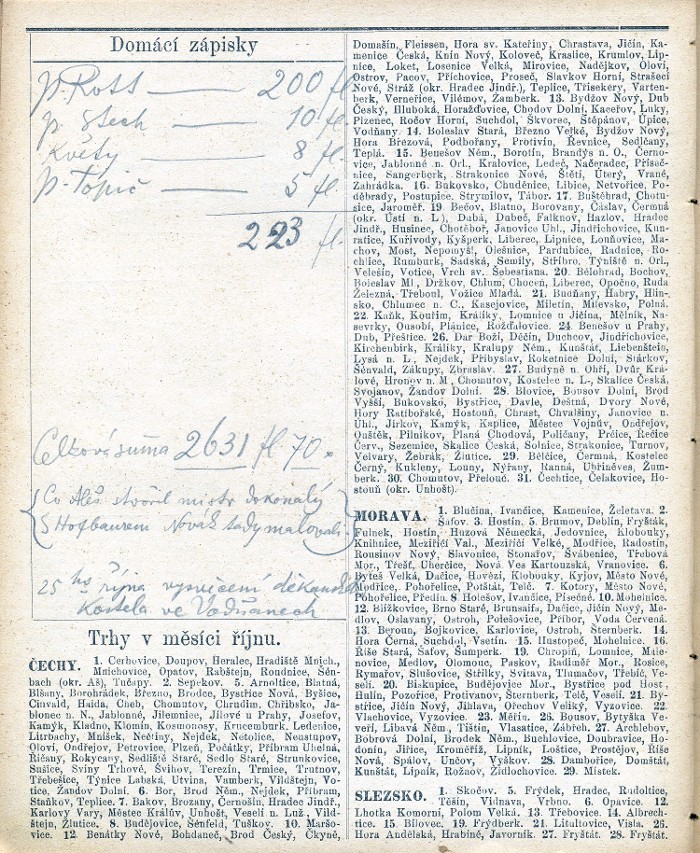 Domácí zápisky
p. Rott — 200 fl
p. Stech — 10 fl.
Květy — 8 fl.
p. Topič — 5 fl.
223 fl.
Celková suma 2631 fl 70.
Co Aleš stvořil mistr dokonalý
S Hofbaurem Novák tady malovali.
25ho října vysvěcení děkanského
kostela ve Vodňanech
Trhy v měsíci říjnu.
ČECHY. 1. Cerhovice, Doupov, Heralec, Hradiště Mnich.,
Mnichovice, Opatov, Rabštejn, Roudnice, Šén-
bach (okr. Aš), Tučapy. 2. Sepekov. 5. Arnoltice, Blatná,
Blšany, Borohrádek, Březno, Brodce, Bystřice Nová, Byšice,
Cinvald, Haida, Cheb, Chomutov, Chrudim, Chřibsko, Ja-
blonec n. N., Jablonné, Jilemnice, Jílové u Prahy, Josefov,
Kamýk, Kladno, Klomín, Kosmonosy, Krucemburk, Ledenice,
Litrbachy, Mníšek, Nečtiny, Nejdek, Netolice, Neustupov,
Oloví, Ondřejov, Petrovice, Plzeň, Počátky, Příbram Uhelná,
Říčany, Rokycany, Sedliště Staré, Sedlo Staré, Strunkovice,
Sušice, Sviny Trhové, Švihov, Terezín, Trmice, Trutnov,
Třebešice, Týnice Labská, Útvina, Vamberk, Vildštejn, Vo-
tice, Žandov Dolní. 6. Bor, Brod Něm., Nejdek, Příbram,
Staňkov, Teplice. 7. Bakov, Brozany, Černošín, Hradec Jindř.,
Karlovy Vary, Městec Králův, Unhošt, Veselí n. Luž., Vild-
štejn, Žlutice. 8. Budějovice, Šénfeld, Tuškov. 10. Maršo-
vice. 12. Benátky Nové, Bohdaneč, Brod Český, Čkyně,
Domašín, Fleissen, Hora sv. Kateřiny, Chrastava, Jičín, Ka-
menice Česká, Knín Nový, Koloveč, Kraslice, Krumlov, Lip-
nice, Loket, Losenice Velká, Mirovice, Nadějkov, Olovi,
Ostrov, Pacov, Příchovice, Proseč, Slavkov Horní, Strašecí
Nové, Stráž (okr. Hradec Jindř.), Teplice, Třísekery, Varten-
berk, Verneřice, Vilémov, Žamberk. 13. Bydžov Nový, Dub
Český, Hluboká, Horažďovice, Chodov Dolní, Kaceřov, Luky,
Plzenec, Ročov Horní, Suchdol, Škvorec, Štěpánov, Úpice,
Vodňany. 14. Boleslav Stará, Březno Velké, Bydžov Nový,
Hora Březová, Podbořany, Protivín, Řevnice, Sedlčany,
Teplá. 15. Benešov Něm., Borotín, Brandýs n. O., Černo-
vice, Jablonné n. Orl., Kralovice, Ledeč, Načeradec, Přiseč-
nice, Sangerberk, Strakonice Nové, Štětí, Úterý, Vrané,
Zahrádka. 16. Bukovsko, Chuděnice, Libice, Netvořice, Po-
děbrady, Postupice, Strymilov, Tábor. 17. Buštěhrad, Chotu-
sice, Jaroměř. 19. Bečov, Blatno, Borovany, Čáslav, Čermná
(okr. Ústí n. L.), Dubá, Dubeč, Falknov, Hazlov, Hradec
Jindř., Husinec, Chotěboř, Janovice Uhl., Jindřichovice, Kun-
ratice, Kuřívody, Kyšperk, Liberec, Lipnice, Louňovice, Ma-
chov, Most, Nepomyšl, Olešnice, Pardubice, Radnice, Ro-
chlice, Rumburk, Sadská, Semily, Stříbro, Týniště n. Orl.,
Velešín, Votice, Vrch sv. Šebestiana. 20. Bělohrad, Bochov,
Boleslav Ml., Držkov, Chlum, Choceň, Liberec, Opočno, Ruda
Železná, Třeboul, Vožice Mladá. 21. Budňany, Habry, Hlin-
sko, Chlumec n. C., Kasejovice, Miletín, Milevsko, Polná.
22. Kaňk, Kouřim, Králíky, Lomnice u Jičína, Mělník, Na-
sevrky, Osousobí, Plánice, Rožďalovice. 24. Benešov u Prahy,
Dub, Přeštice. 26. Dar Boží, Děčín, Duchcov, Jindřichovice,
Kirchenbirk, Králíky, Kralupy Něm., Kunštát, Liebenštein,
Lysá n. L., Nejdek, Přibyslav, Roketnice Dolní, Stárkov,
Šénvald, Zákupy, Zbraslav. 27. Budyně n. Ohří, Dvůr Krá-
lové, Hronov n. M., Chomutov, Kostelec n. L., Skalice Česká,
Svojanov, Žandov Dolní. 28. Blovice, Bonsov Dolní, Brod
Vyšší, Bukovsko, Bystřice, Davle, Deštná, Dvory Nové,
Hory Ratibořské, Hostouň, Chrast, Chvalšiny, Janovice n.
Uhl., Jirkov, Kamýk, Kaplice, Městec Vojnův, Ondřejov,
Onštěk, Pilníkov, Planá Chodová, Poličany, Prčice, Rečice
Červ., Sezemice, Skalice Česká, Solnice, Strakonice, Turnov,
Velvary, Žebrák, Žlutice. 29. Bělčice, Čermná, Kostelec
Černý, Kukleny, Louny, Nýřany, Ranná, Uhřiněves, Žum-
berk. 30. Chomutov, Přelouč. 31. Čechtice, Čelakovice, Ho-
stouň (okr. Unhošt).
MORAVA. 1. Blučina, Ivančice, Kamenice, Želetava. 2.
Šafov. 3. Hostín. 5. Brumov, Deblín, Fryšták,
Fulnek, Hostín, Huzová Německá, Jedovnice, Klobouky,
Knihnice, Meziříčí Val., Meziříčí Velké, Modřice, Radostín,
Rousinov Nový, Slavonice, Stonařov, Švábenice, Třebová
Mor., Třešť, Uherčice, Nová Ves Kartouzská, Vranovice. 6.
Byteš Velká, Dačice, Hovězí, Klobouky, Kyjov, Město Nové,
Modřice, Pohořelice, Potštát, Telč. 7. Kotory, Město Nové,
Pohořelice, Předín. 8. Holešov, Ivančice, Písečné. 10. Mohelnice.
12. Blížkovice, Brno Staré, Brunsaifa, Dačice, Jičín Nový, Me-
dlov, Oslavany, Ostroh, Polešovice, Příbor, Voda Červená.
13. Beroun, Bojkovice, Karlovice, Ostroh, Šternberk. 14.
Hora Černá, Suchdol, Vsetín. 15. Hustopeč, Mohelnice. 16.
Říše Stará, Šafov, Šumperk. 19. Chropiň, Lomnice, Male-
novice, Medlov, Olomouc, Paskov, Radiměř Mor., Rosice,
Rymařov, Slušovice, Střílky, Svitava, Tlumačov, Třebíč, Ve-
selí. 20. Biskupice, Budějovice Mor., Bystřice pod Host.,
Hulín, Pozořice, Protivanov, Šternberk, Telč, Veselí. 21. By-
střice, Jičín Nový, Jihlava, Ořechov Veliký, Vyzovice. 22.
Vlachovice, Vyzovice. 23. Měřín. 26. Bousov, Bytyška Ve-
veří, Libavá Něm., Tištín, Vlasatice, Zábřeh. 27. Archlebov,
Bobrová Dolní, Brodek Něm., Buchlovice, Doubravice, Ho-
donín, Jiřice, Kroměříž, Lipník, Loštice, Prostějov, Říše
Nová, Spálov, Unčov, Vyškov. 28. Dambořice, Domštát,
Kunštát, Lipník, Rožnov, Židlochovice. 29. Místek.
SLEZSKO. 1. Skočov. 5. Frýdek, Hradec, Rudoltice,
Těšín, Vidnava, Vrbno. 6. Opavice. 12.
Lhotka Komorní, Polom Velká. 13. Třebovice. 14. Albrech-
tice. 15. Bílovec. 19. Frýdberk. 21. Litultovice, Visla. 26.
Hora Andělská, Hrabině, Javorník. 27. Fryštát. 28. Fryštát.